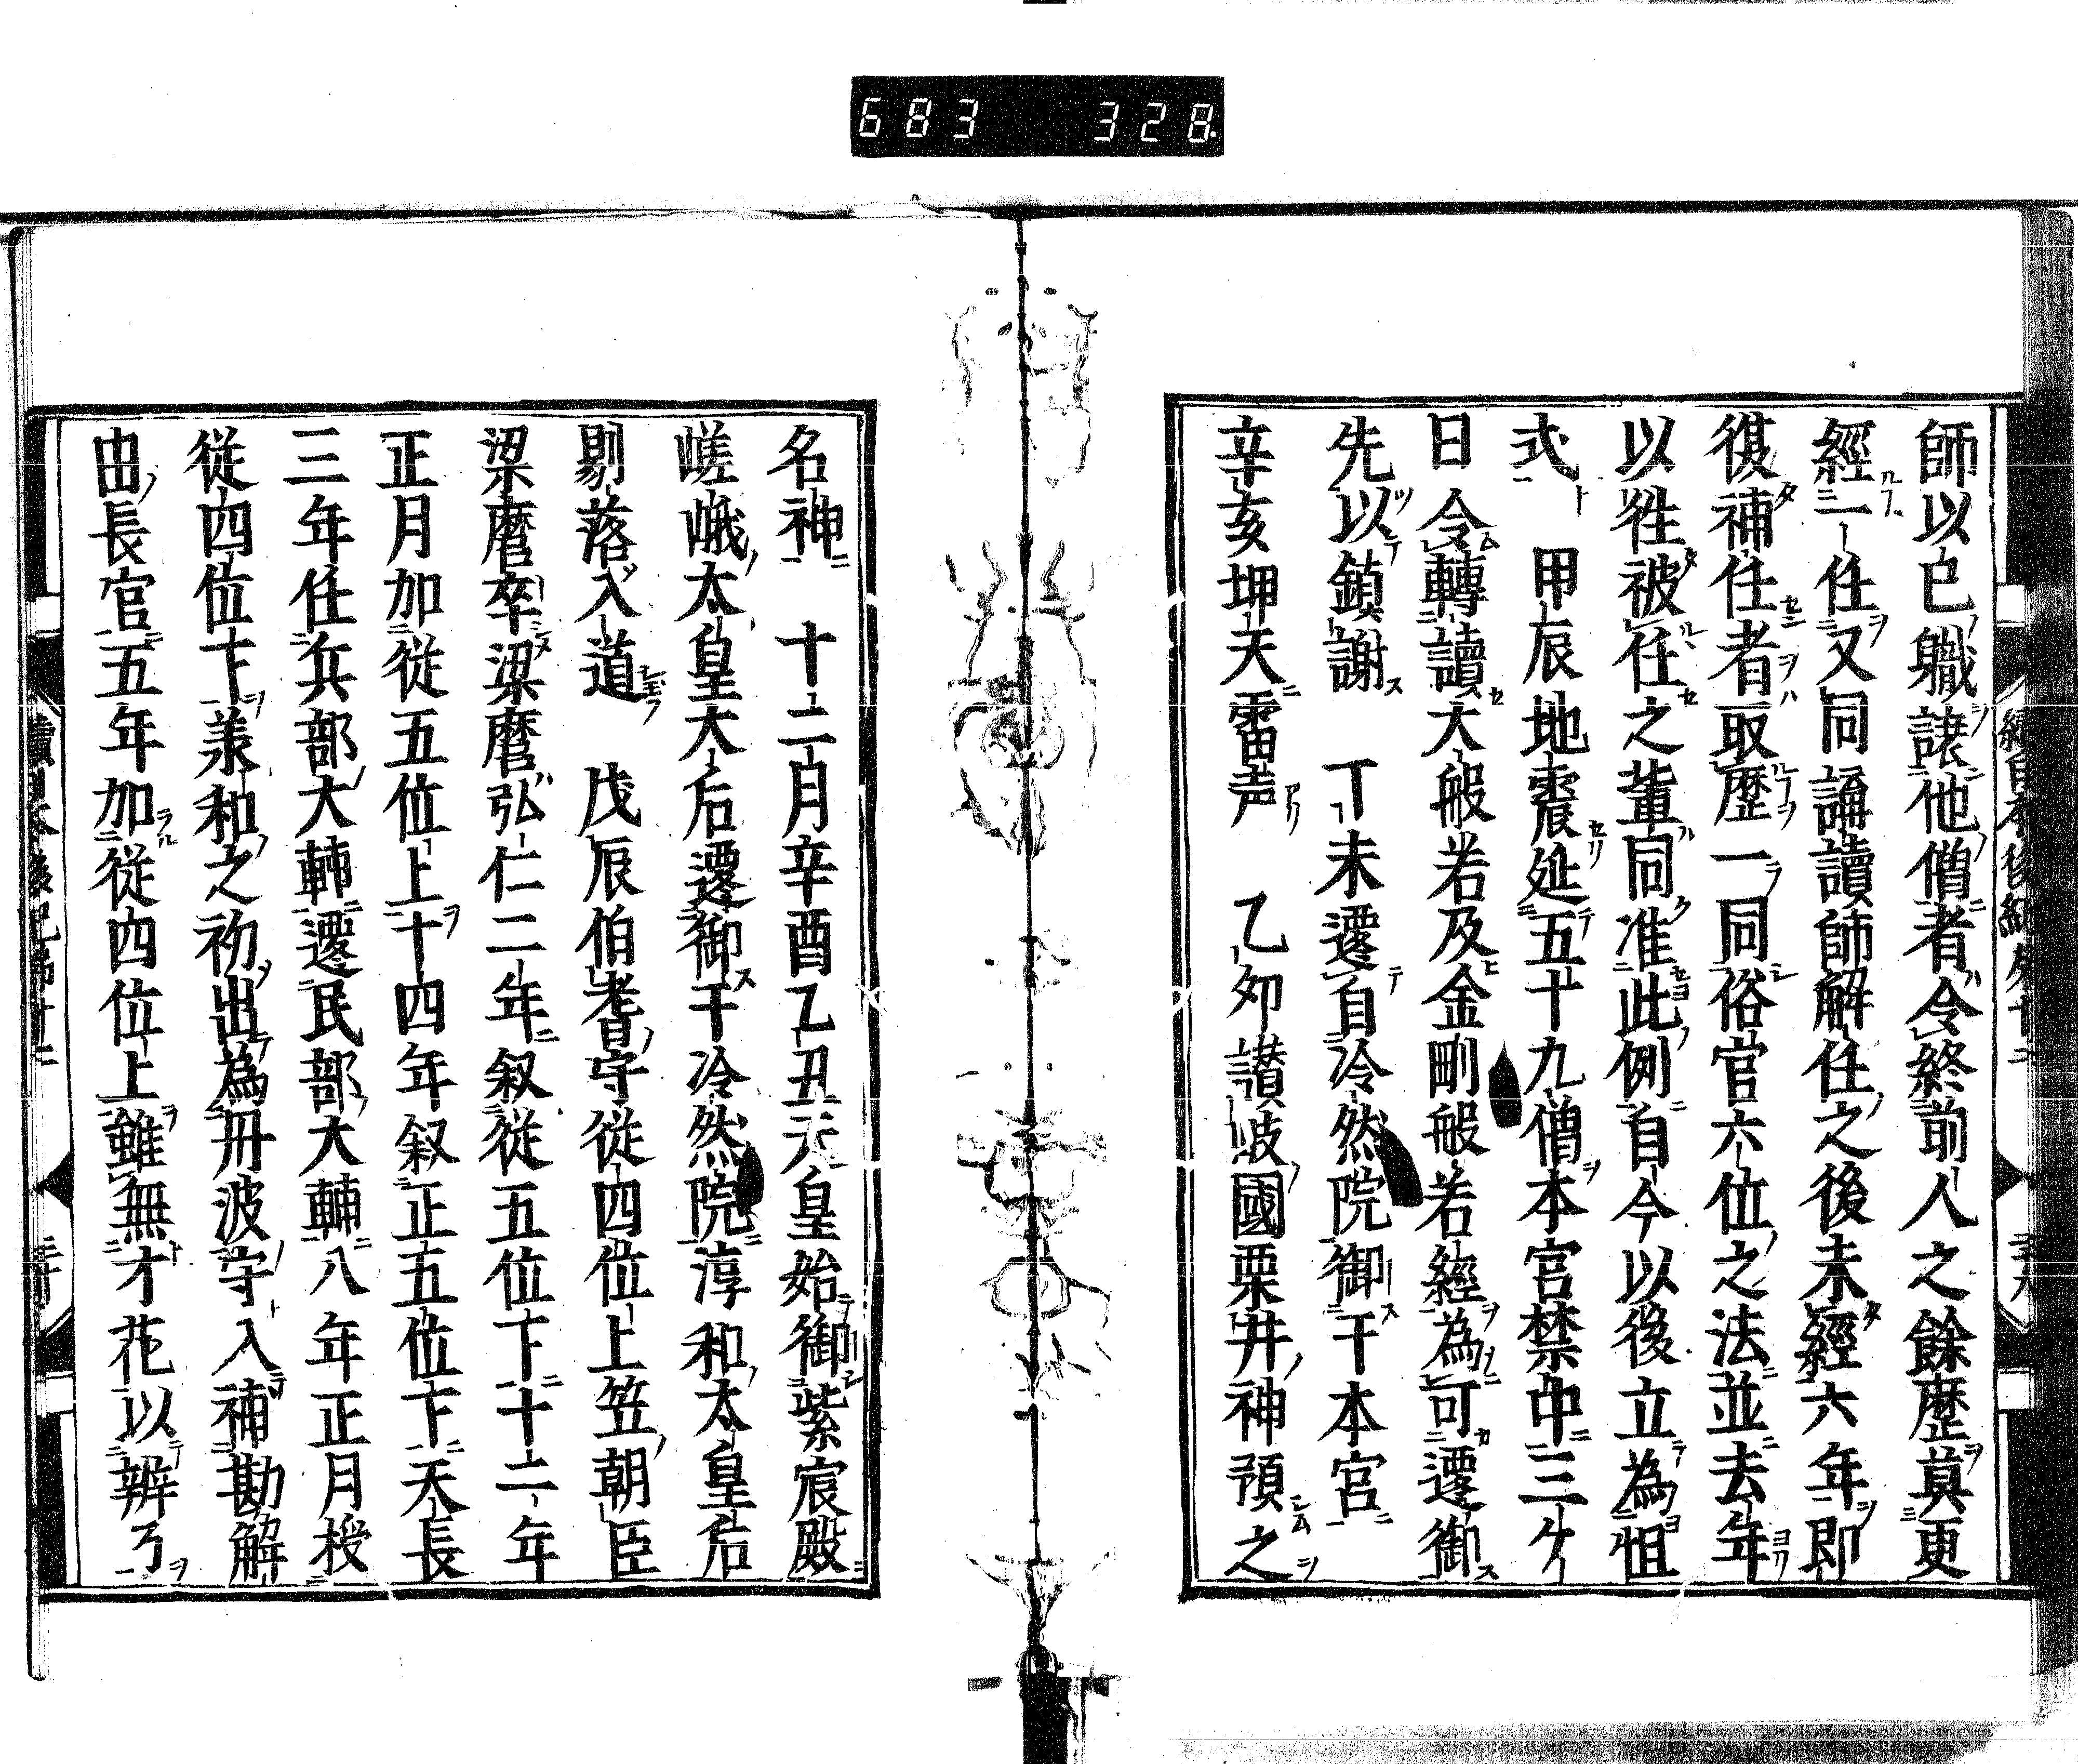 683 328
師以已職譲他僧者令終前人之餘歷其更
經二任又同論讀師解任之後未經六年即
復補任者取歷一同俗官六位之法並去年
以徃被任之輩同准此例自今以後立為恒
式 甲辰地震延五十九僧本宮禁中三ケ
日令轉讀大般若及金剛般若經為可遷御
先以鎮謝 丁未遷自冷然院御于本宮
辛亥坤天雷声 乙夘讃岐國粟井神預之
名神 十二月辛酉乙丑天皇始御紫宸殿
嵯峨太皇大后遷御于冷然院淳和太皇后
剔落入道 戊辰伯耆守從四位上笠朝臣
梁麿卒梁麿弘仁二年叙從五位下十二年
正月加從五位上十四年叙正五位下天長
三年任兵部大輔遷民部大輔八年正月授
從四位下羕和之初出為丹波守入補勘解
由長官五年加從四位上雖無才花以辨了